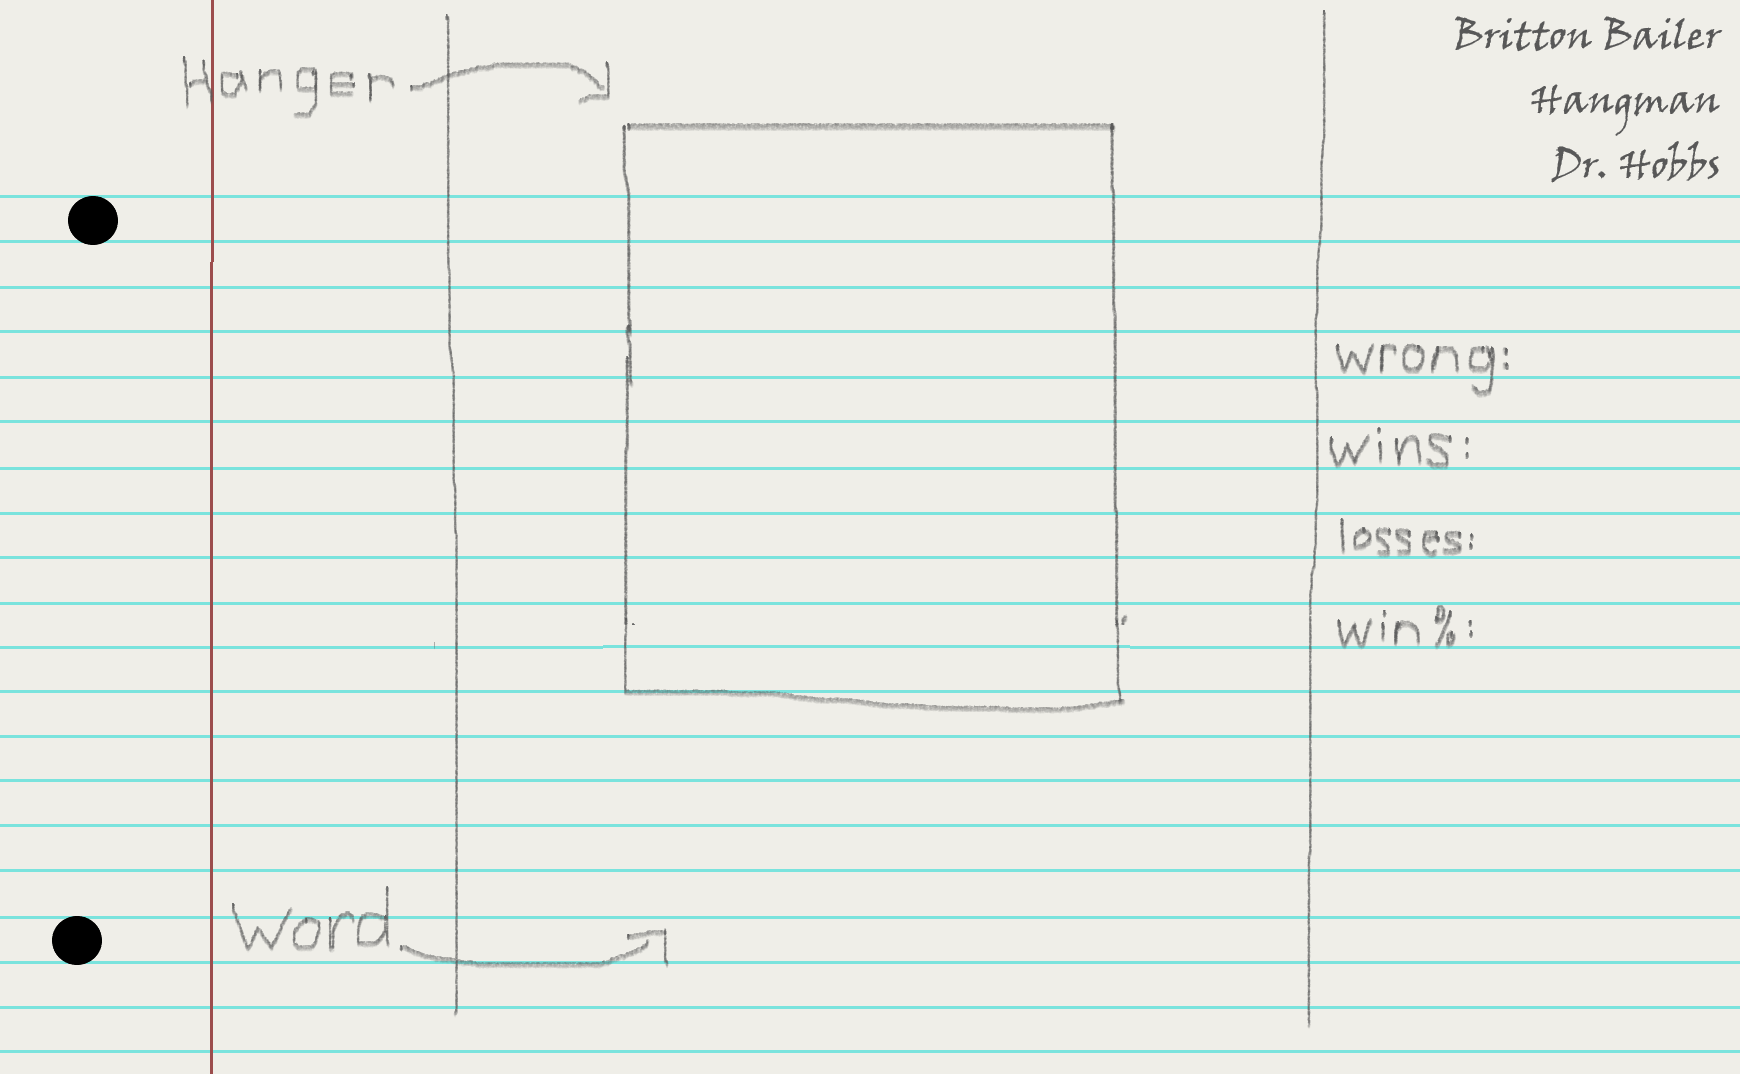 Britton Bailer
Hangman
Dr. Hobbs
Hanger
wrong:
wins:
losses:
win%:
Word